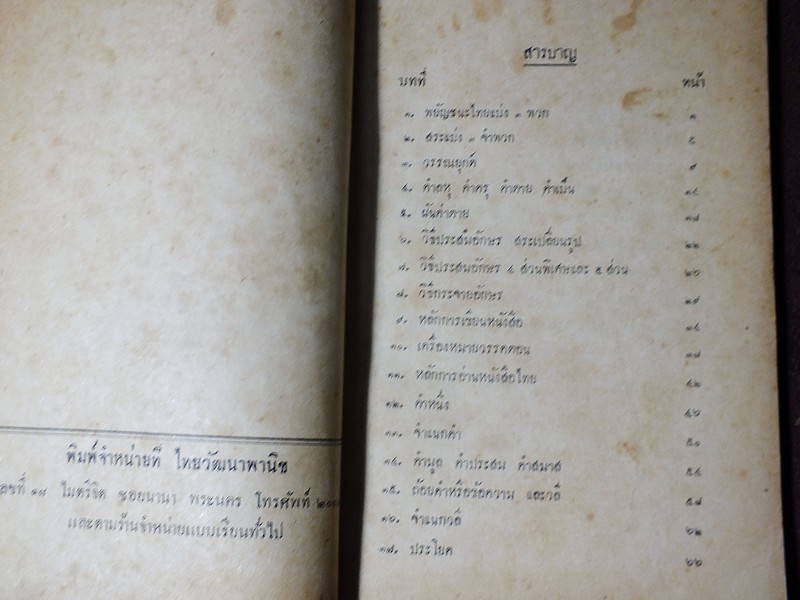 พิมพ์จำหน่ายที่ ไทยวัฒนาพานิช
เลขที่ ๑๘ ไมตรีจิต ซอยนานา พระนคร โทรศัพท์
และตามร้านจำหน่ายแบบเรียนทั่วไป
สารบาญ
บทที่ หน้า
๑. พยัญชนะไทยแบ่ง ๓ พวก ๑
๒. สระแบ่ง ๓ จำพวก ๕
๓. วรรณยุกต์ ๙
๔. คำลหุ คำครุ คำตาย คำเป็น ๑๔
๕. ผันคำตาย ๑๗
๖. วิธีประสมอักษร สระเปลี่ยนรูป ๒๒
๗. วิธีประสมอักษร ๔ ส่วนพิเศษและ ๕ ส่วน ๒๖
๘. วิธีกระจายอักษร ๒๙
๙. หลักการเรียนหนังสือ ๓๔
๑๐. เครื่องหมายวรรคตอน ๓๗
๑๑. หลักการอ่านหนังสือไทย ๔๒
๑๒. คำหนึ่ง ๔๖
๑๓. จำแนกคำ ๕๑
๑๔. คำมูล คำประสม คำสมาส ๕๔
๑๕. ถ้อยคำหรือข้อความ และวลี ๕๗
๑๖. จำแนกวลี ๖๒
๑๗. ประโยค ๖๖